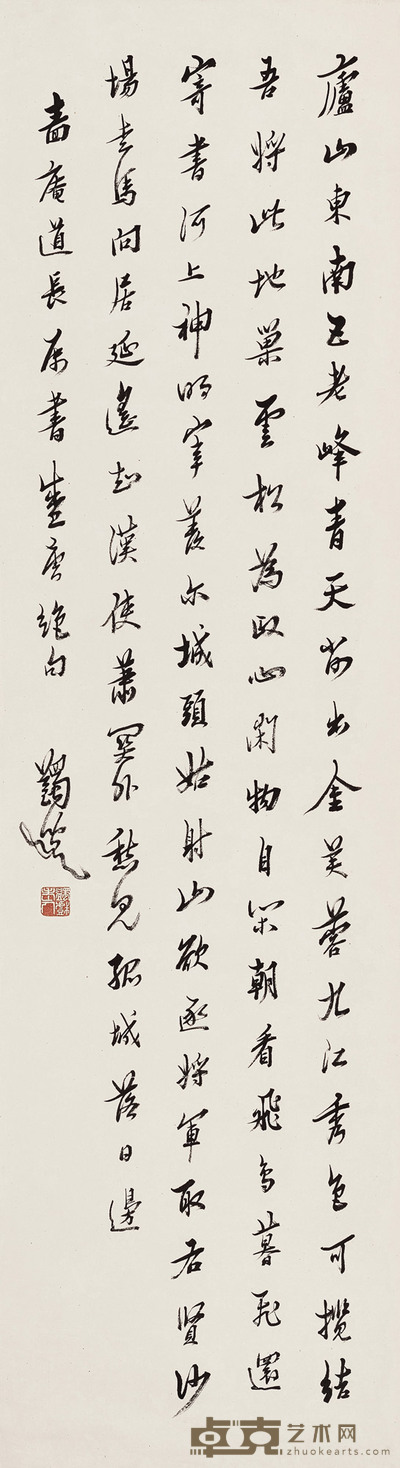 廬山東南五老峰青天削出金芙蓉九江秀色可攬結
吾將此地巢雲松為政心閑物自閑朝看飛鳥暮飛還
寄書河上神明宰羨尔城頭姑射山欲逐將軍取右賢沙
場走馬向居延遙知漢使蕭關外愁見孤城落日邊
嗇庵道長屬書盛唐絕句
蠲叟
卓克艺术网
www.zhuokearts.com